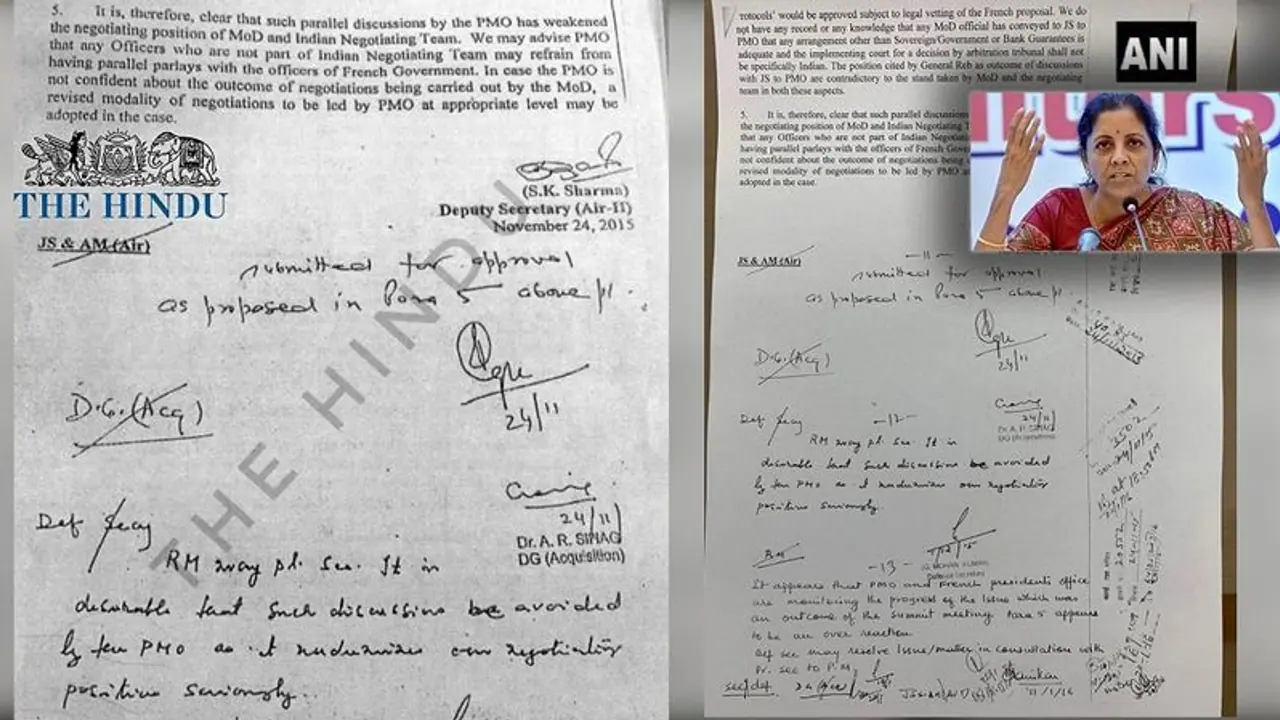 5. It is, therefore, clear that such parallel discussions by the PMO has weakened
the negotiating position of MoD and Indian Negotiating Team. We may advise PMO
that any Officers who are not part of Indian Negotiating Team may refrain from
having parallel parlays with the officers of French Government. In case the PMO is
not confident about the outcome of negotiations being carried out by the MoD, a
revised modality of negotiations to be led by PMO at appropriate level may be
adopted in the case.
THE HINDU
(S.K. Sharma)
Deputy Secretary (Air-II)
November 24, 2015
JS & AM (Air)
submitted for approval
as proposed in Para 5 above pl.
24/11
D.G. (Acq)
24/11
Dr. A. R. SIHAG
DG (Acquisition)
Def Secy
RM may pl. see. It is
desirable that such discussions be avoided
by the PMO as it undermines our negotiating
position seriously.
THE HINDU
rotocols' would be approved subject to legal vetting of the French proposal. We do
not have any record or any knowledge that any MoD official has conveyed to JS to
PMO that any arrangement other than Sovereign/Government or Bank Guarantees is
adequate and the implementing court for a decision by arbitration tribunal shall not
be specifically Indian. The position cited by General Reb as outcome of discussions
with JS to PMO are contradictory to the stand taken by MoD and the negotiating
team in both these aspects.
5. It is, therefore, clear that such parallel discussions
the negotiating position of MoD and Indian Negotiating T
that any Officers who are not part of Indian Negotiating
having parallel parlays with the officers of French Gover
not confident about the outcome of negotiations being
revised modality of negotiations to be led by PMO at a
adopted in the case.
ANI
JS & AM (Air)
-11-
submitted for approval
as proposed in Para 5 above pl.
24/11
D.G. (Acq)
24/11
Dr. A. R. SIHAG
DG (Acquisition)
Def Secy
-12-
RM may pl. see. It is
desirable that such discussions be avoided
by the PMO as it undermines our negotiating
position seriously.
1/12/15
(G. MOHAN KUMAR)
Defence Secretary
RM
-13-
It appears that PMO and French president's office
are monitoring the progress of the issue which was
an outcome of the summit meeting. Para 5 appears
to be an over reaction
Def sec may resolve issue/matter in consultation with
Pr. sec to P.M.
sec/def
11/1/16